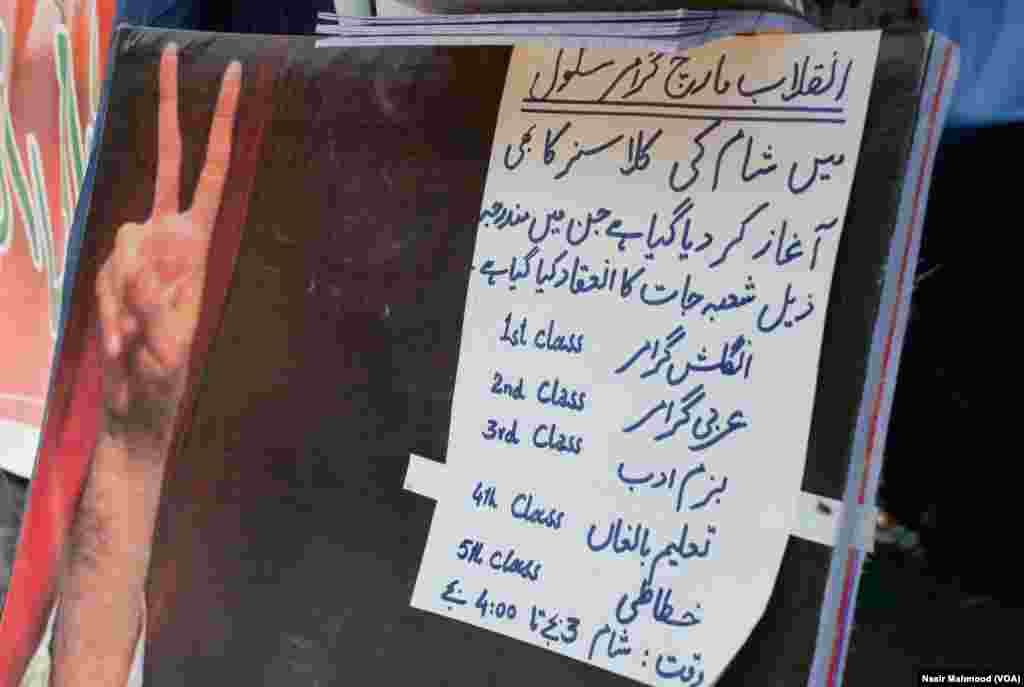 انقلاب مارچ گرامر سکول
میں شام کی کلاسز کا بھی
آغاز کر دیا گیا ہے جن میں مندرجہ
ذیل شعبہ جات کا انعقاد کیا گیا ہے۔
انگلش گرامر 1st Class
عربی گرامر 2nd Class
بزم ادب 3rd Class
تعلیم بالغاں 4th Class
خطاطی 5th Class
وقت : شام 3 بجے تا 4:00 بجے
Nasir Mahmood (VOA)